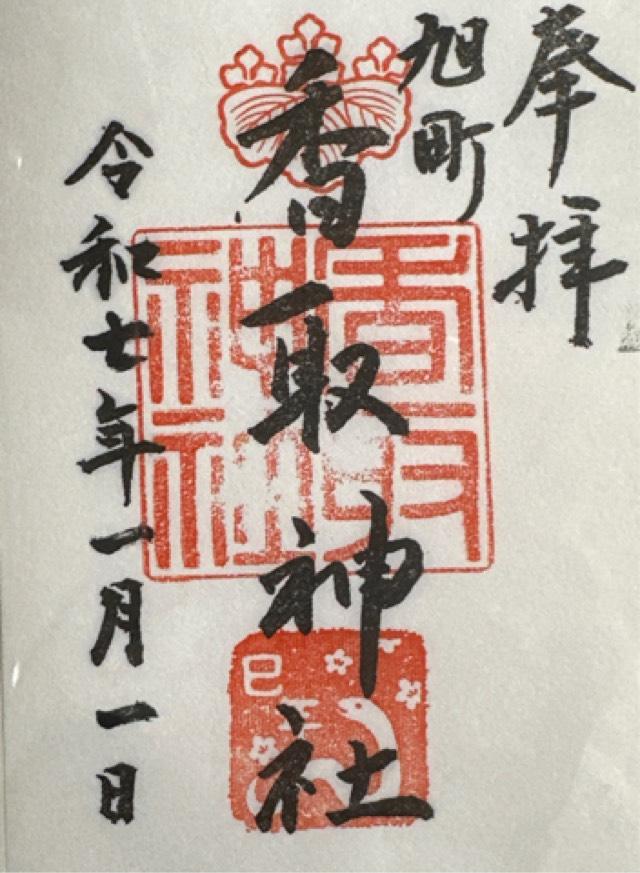 奉拝
旭町
香取神社
香取神社
巳
令和七年一月一日